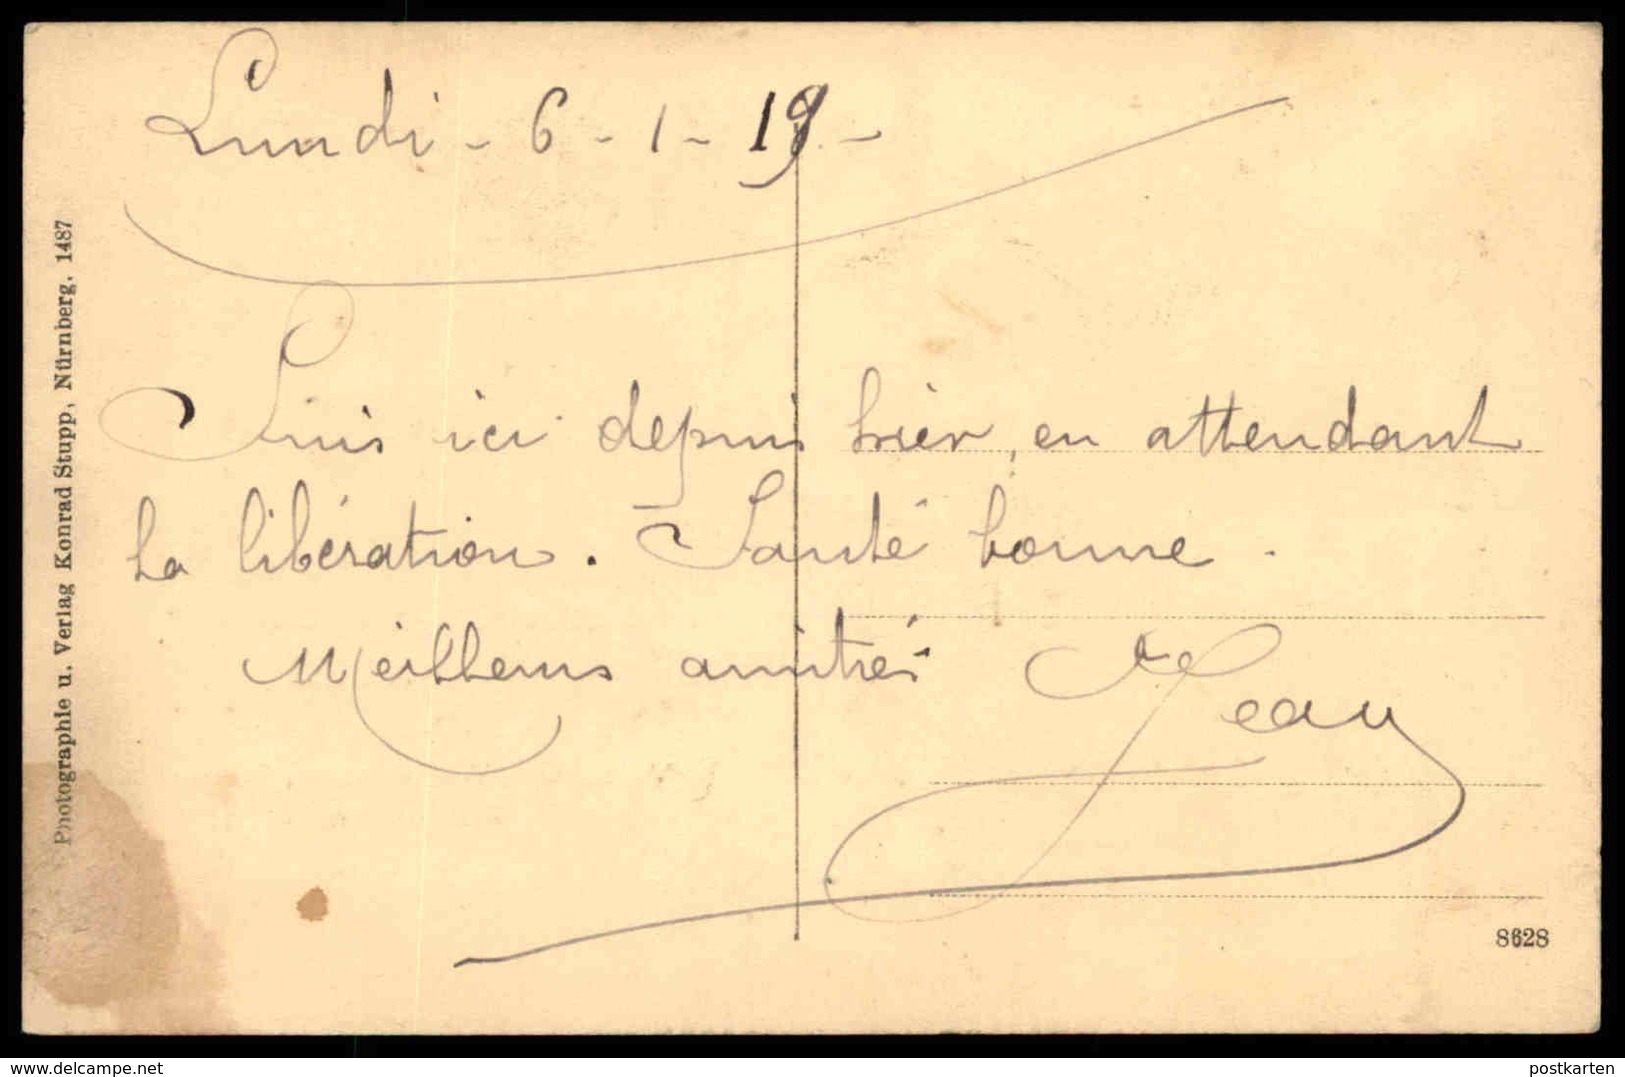 Lundi - 6 - 1 - 19. -
Suis ici depuis hier, en attendant
la libération. Santé bonne.
Meilleurs amitiés Jean
Photographie u. Verlag Konrad Stupp, Nürnberg. 1487
8628
www.delcampe.net
postkarten